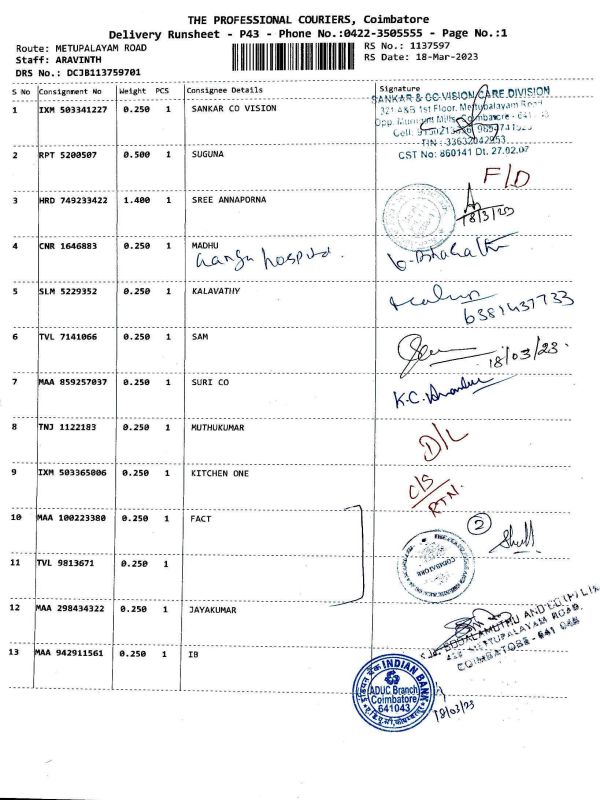 THE PROFESSIONAL COURIERS, Coimbatore
Delivery Runsheet - P43 - Phone No.:0422-3505555 - Page No.:1
Route: METUPALAYAM ROAD
RS No.: 1137597
Staff: ARAVINTH
RS Date: 18-Mar-2023
DRS No.: DCJB113759701
S No Consignment No Weight PCS Consignee Details Signature
1 IXM 503341227 0.250 1 SANKAR CO VISION
SANKAR & CO VISION CARE DIVISION
321 A&B 1st Floor, Mettupalayam Road
Opp. Murugan Mills, Coimbatore - 641
Cell:
TIN : 33632042953
CST No: 860141 Dt. 27.02.07
2 RPT 5200507 0.500 1 SUGUNA
F/D
3 HRD 749233422 1.400 1 SREE ANNAPORNA
18/3/23
4 CNR 1646883 0.250 1 MADHU
Ganga hospital.
5 SLM 5229352 0.250 1 KALAVATHY
6381437733
6 TVL 7141066 0.250 1 SAM
18/03/23.
7 MAA 859257037 0.250 1 SURI CO
K.C.
8 TNJ 1122183 0.250 1 MUTHUKUMAR
D/L
9 IXM 503365006 0.250 1 KITCHEN ONE
C/S
RTN.
10 MAA 100223380 0.250 1 FACT
2
COIMBATORE
11 TVL 9813671 0.250 1
12 MAA 298434322 0.250 1 JAYAKUMAR
METTUPALAYAM ROAD,
COIMBATORE - 641
13 MAA 942911561 0.250 1 IB
इंडियन बैंक INDIAN BANK
ADUC Branch
Coimbatore
641043
18/03/23